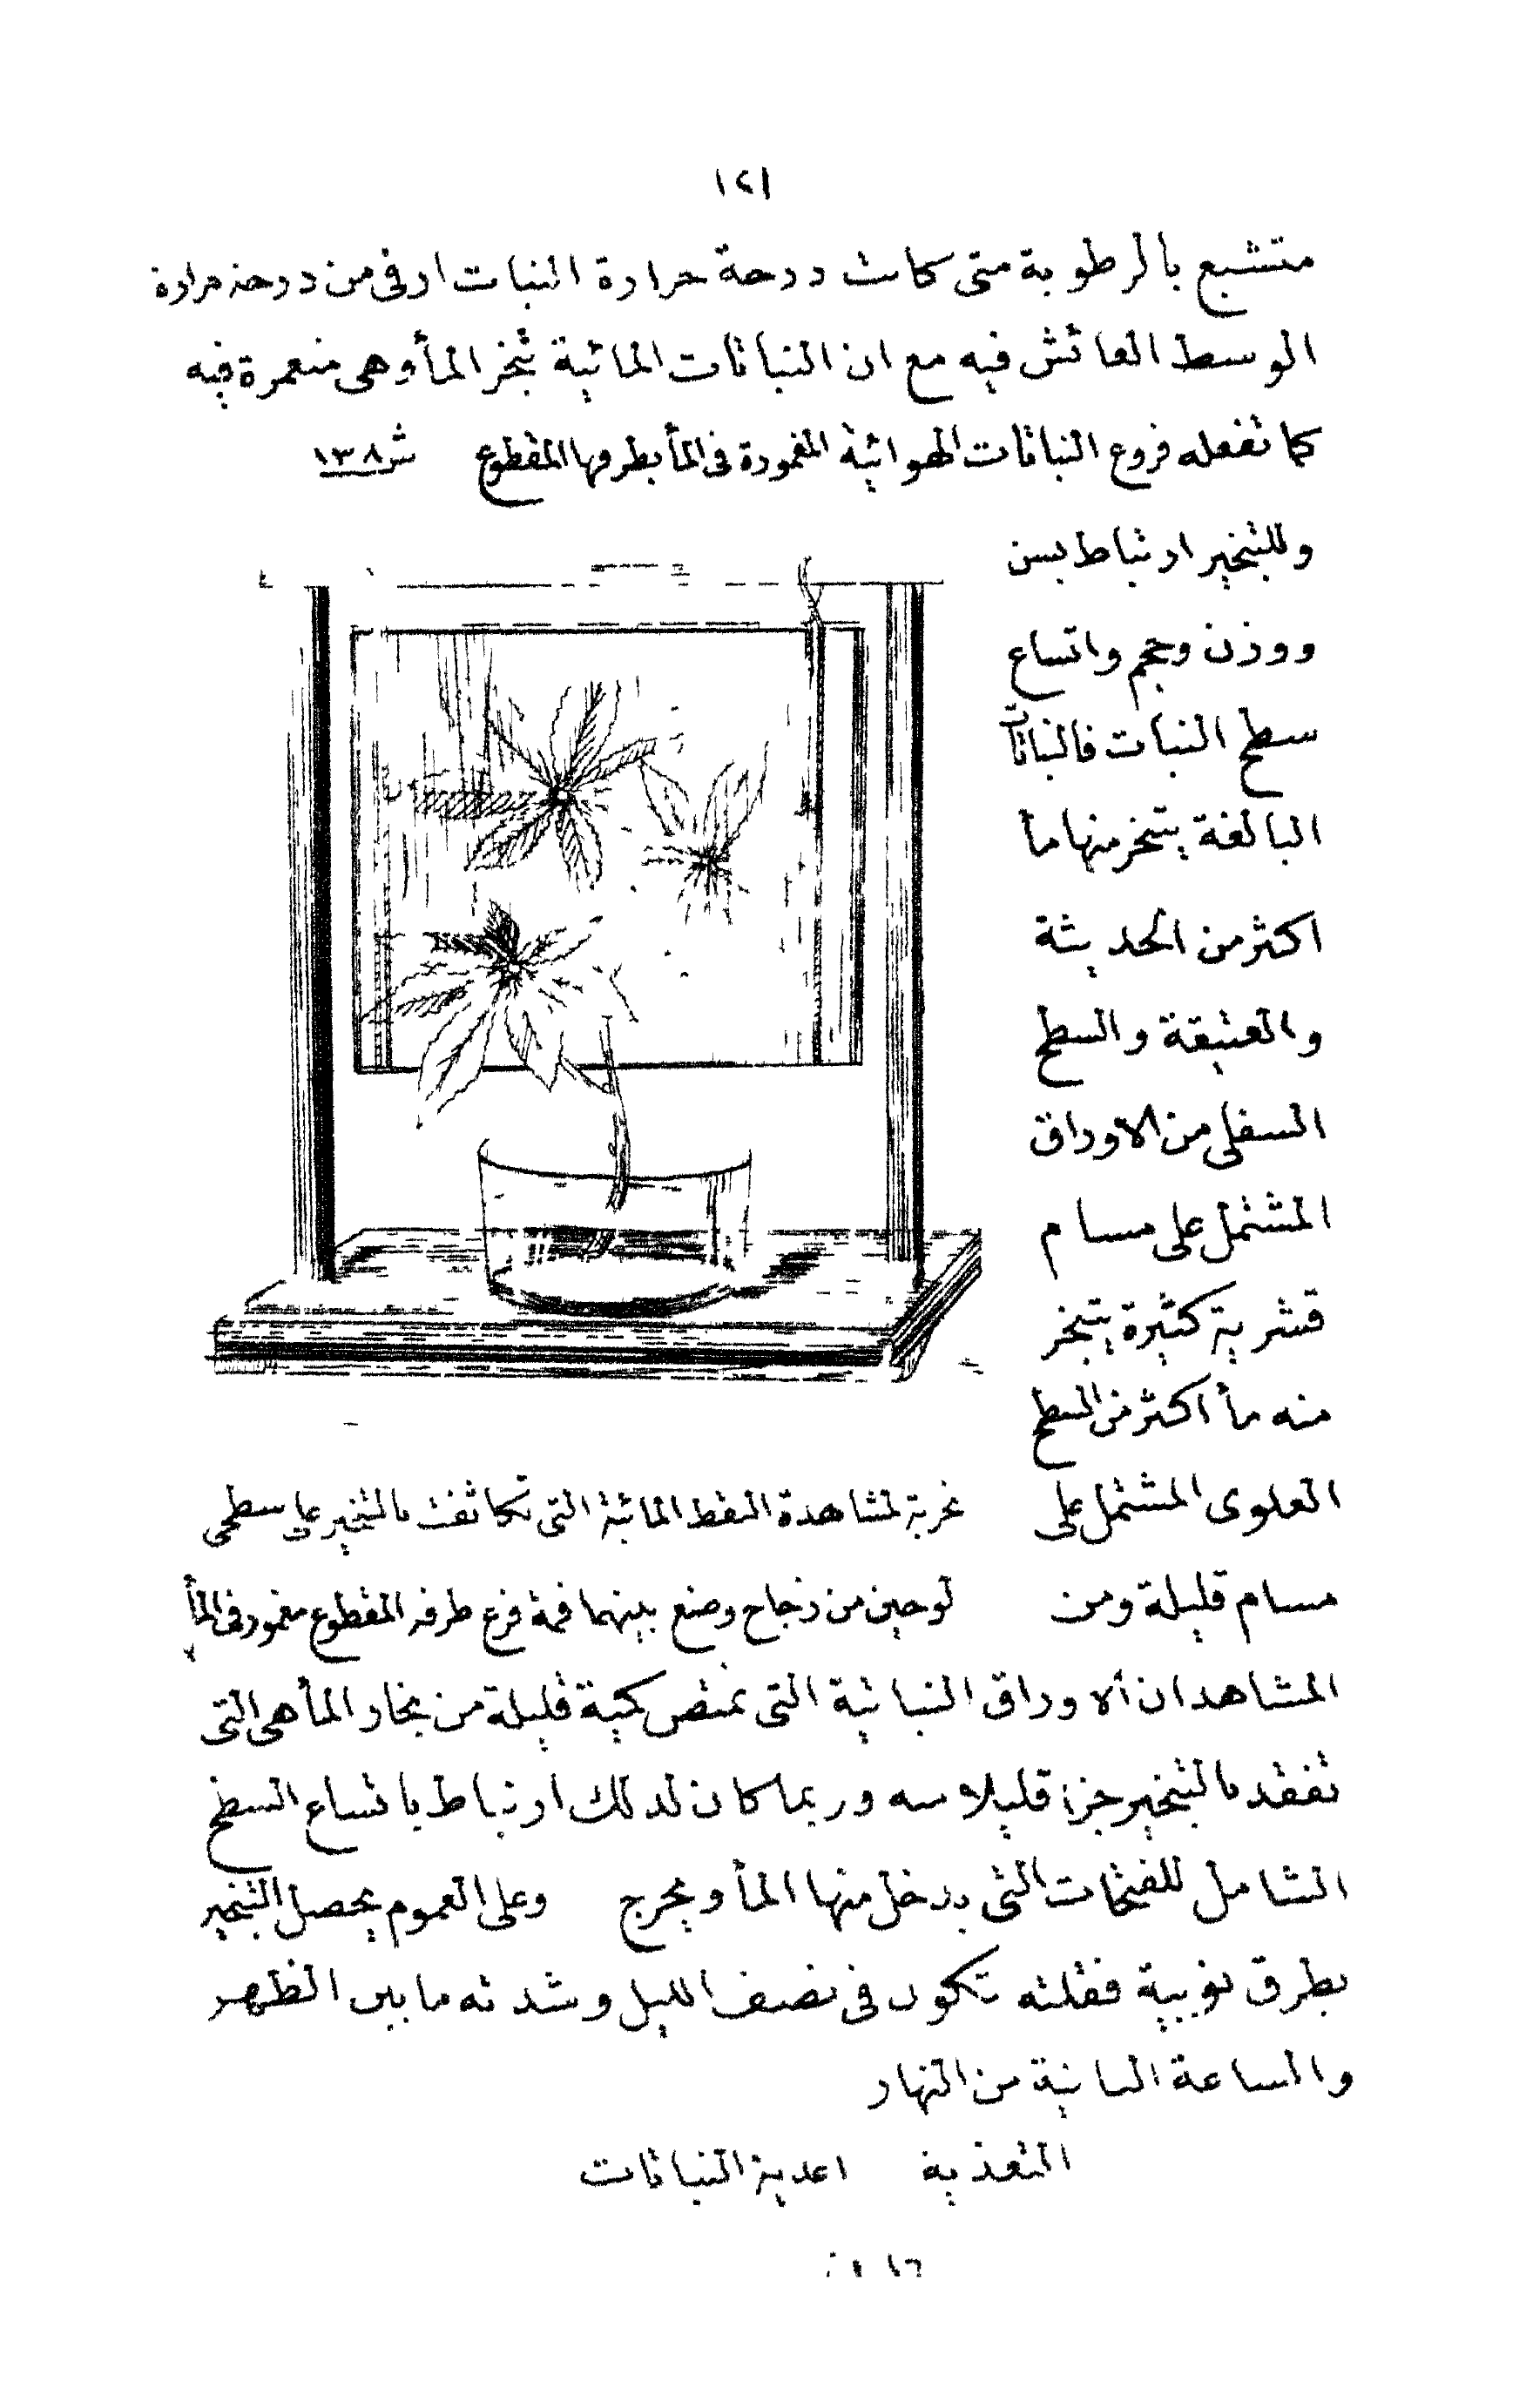 ١٢١
متشبع بالرطوبة متى كانت درجة حرارة النبات ارقى من درجة حرارة
الوسط العائش فيه مع ان النباتات المائية تبخر المأ وهى منغمرة فيه
كما تفعله فروع النباتات الهوائية المغمورة فى المأ بطرفها المقطوع شر ١٣٨
وللتبخير ارتباط بسن
ووزن وحجم واتساع
سطح النبات فالنباتات
البالغة يتبخر منها مأ
اكثر من الحديثة
والعتيقة والسطح
السفلى من الاوراق
المشتمل على مسام
قشرية كثيرة يتبخر
منه مأ اكثر من السطح
العلوى المشتمل على
مسام قليلة ومن
تجربة لمشاهدة النقط المائية التى تكاثفت بالتبخير على سطحى
لوحين من زجاج وضع بينهما قمة فرع طرفه المقطوع مغمور فى المأ
المشاهد ان الاوراق النباتية التى تمتص كمية قليلة من بخار المأ هى التى
تفقد بالتبخير جزأ قليلا منه وربما كان لذلك ارتباط باتساع السطح
الشامل للفتحات التى يدخل منها المأ ويخرج وعلى العموم يحصل التبخير
بطرق نوبية فقلته تكون فى نصف الليل وشدته ما بين الظهر
والساعة الثانية من النهار
التغذية اغذية النباتات
١٦